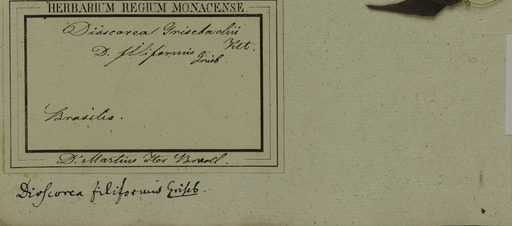 HERBARIUM REGIUM MONACENSE.
Dioscorea Grisebachii
D. filiformis Griseb
Brasilia.
D. Martius Iter Brasil.
Dioscorea filiformis Griseb.